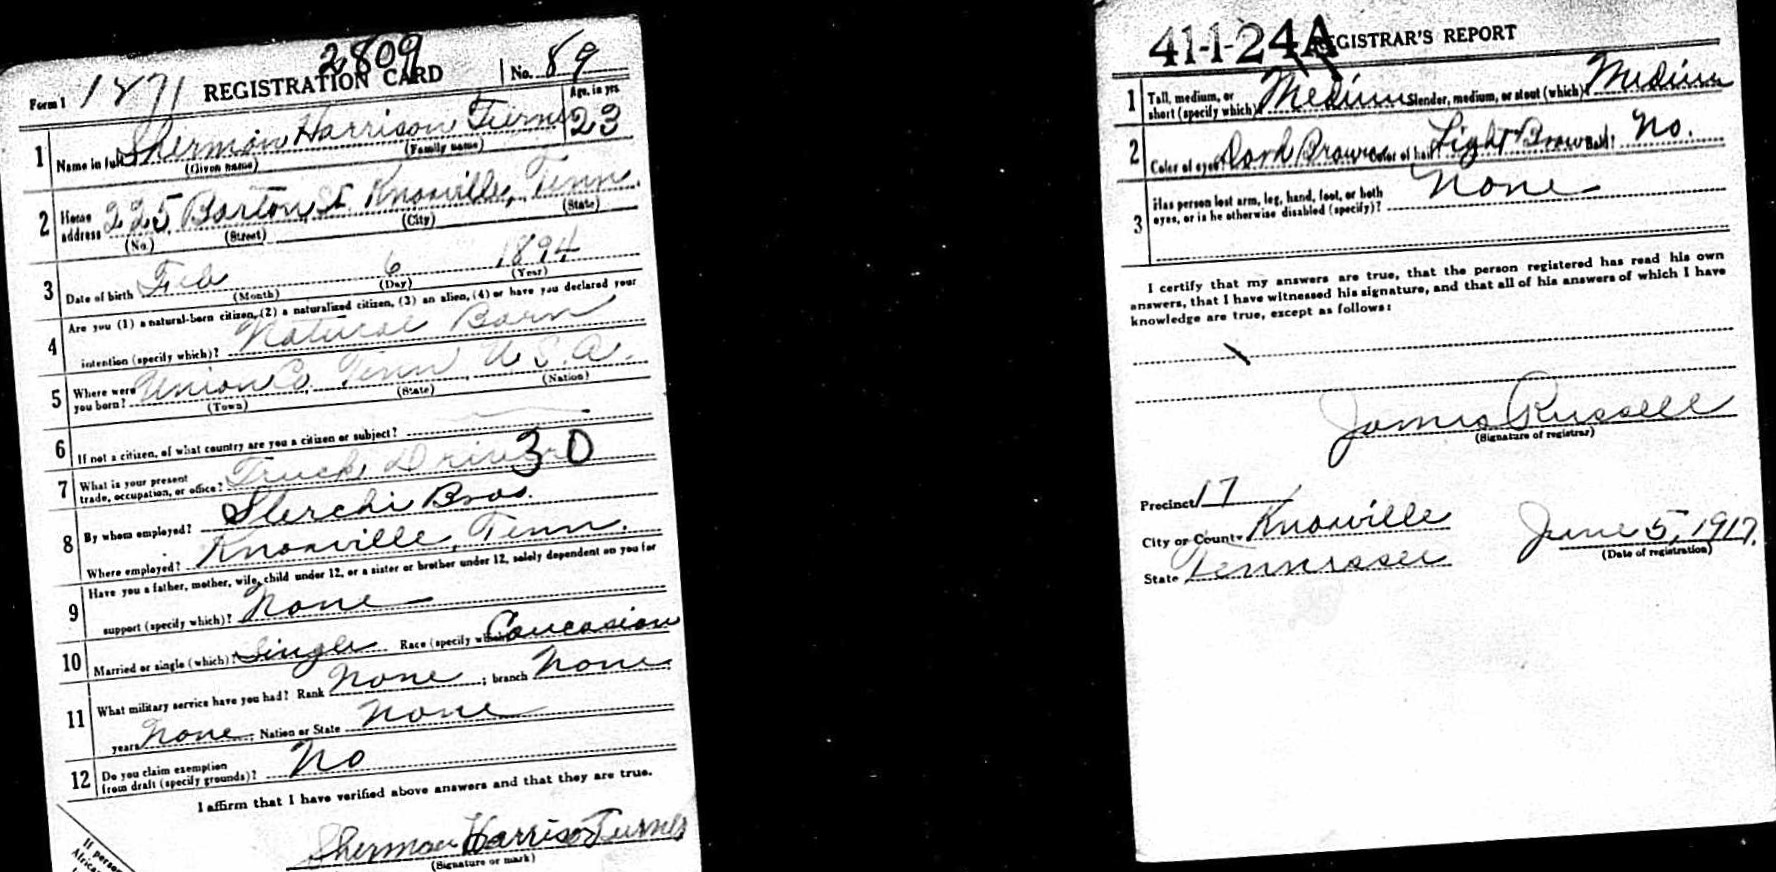 2809
Form 1 1271 REGISTRATION CARD No. 89
1 Name in full Sherman Harrison Turner Age, in yrs 23
(Given name) (Family name)
2 Home address 225 Barton St. Knoxville, Tenn.
(No.) (Street) (City) (State)
3 Date of birth Feb 6 1894
(Month) (Day) (Year)
4 Are you (1) a natural-born citizen, (2) a naturalized citizen, (3) an alien, (4) or have you declared your
intention (specify which)? Natural Born
5 Where were you born? Union Co. Tenn U.S.A.
(Town) (State) (Nation)
6 If not a citizen, of what country are you a citizen or subject?
7 What is your present trade, occupation, or office? Truck Driver 30
8 By whom employed? Sterchi Bros.
Where employed? Knoxville, Tenn.
9 Have you a father, mother, wife, child under 12, or a sister or brother under 12, solely dependent on you for
support (specify which)? None
10 Married or single (which)? Single Race (specify which)? Caucasian
11 What military service have you had? Rank None ; branch None
years None ; Nation or State None
12 Do you claim exemption from draft (specify grounds)? No
I affirm that I have verified above answers and that they are true.
Sherman Harrison Turner
(Signature or mark)
If person
African
41-1-24 A REGISTRAR'S REPORT
1 Tall, medium, or short (specify which)? Medium Slender, medium, or stout (which)? Medium
2 Color of eyes? Dark Brown Color of hair? Light Brown Bald? No.
3 Has person lost arm, leg, hand, foot, or both
eyes, or is he otherwise disabled (specify)? None
I certify that my answers are true, that the person registered has read his own
answers, that I have witnessed his signature, and that all of his answers of which I have
knowledge are true, except as follows:
James Russell
(Signature of registrar)
Precinct 17
City or County Knoxville June 5, 1917.
(Date of registration)
State Tennessee